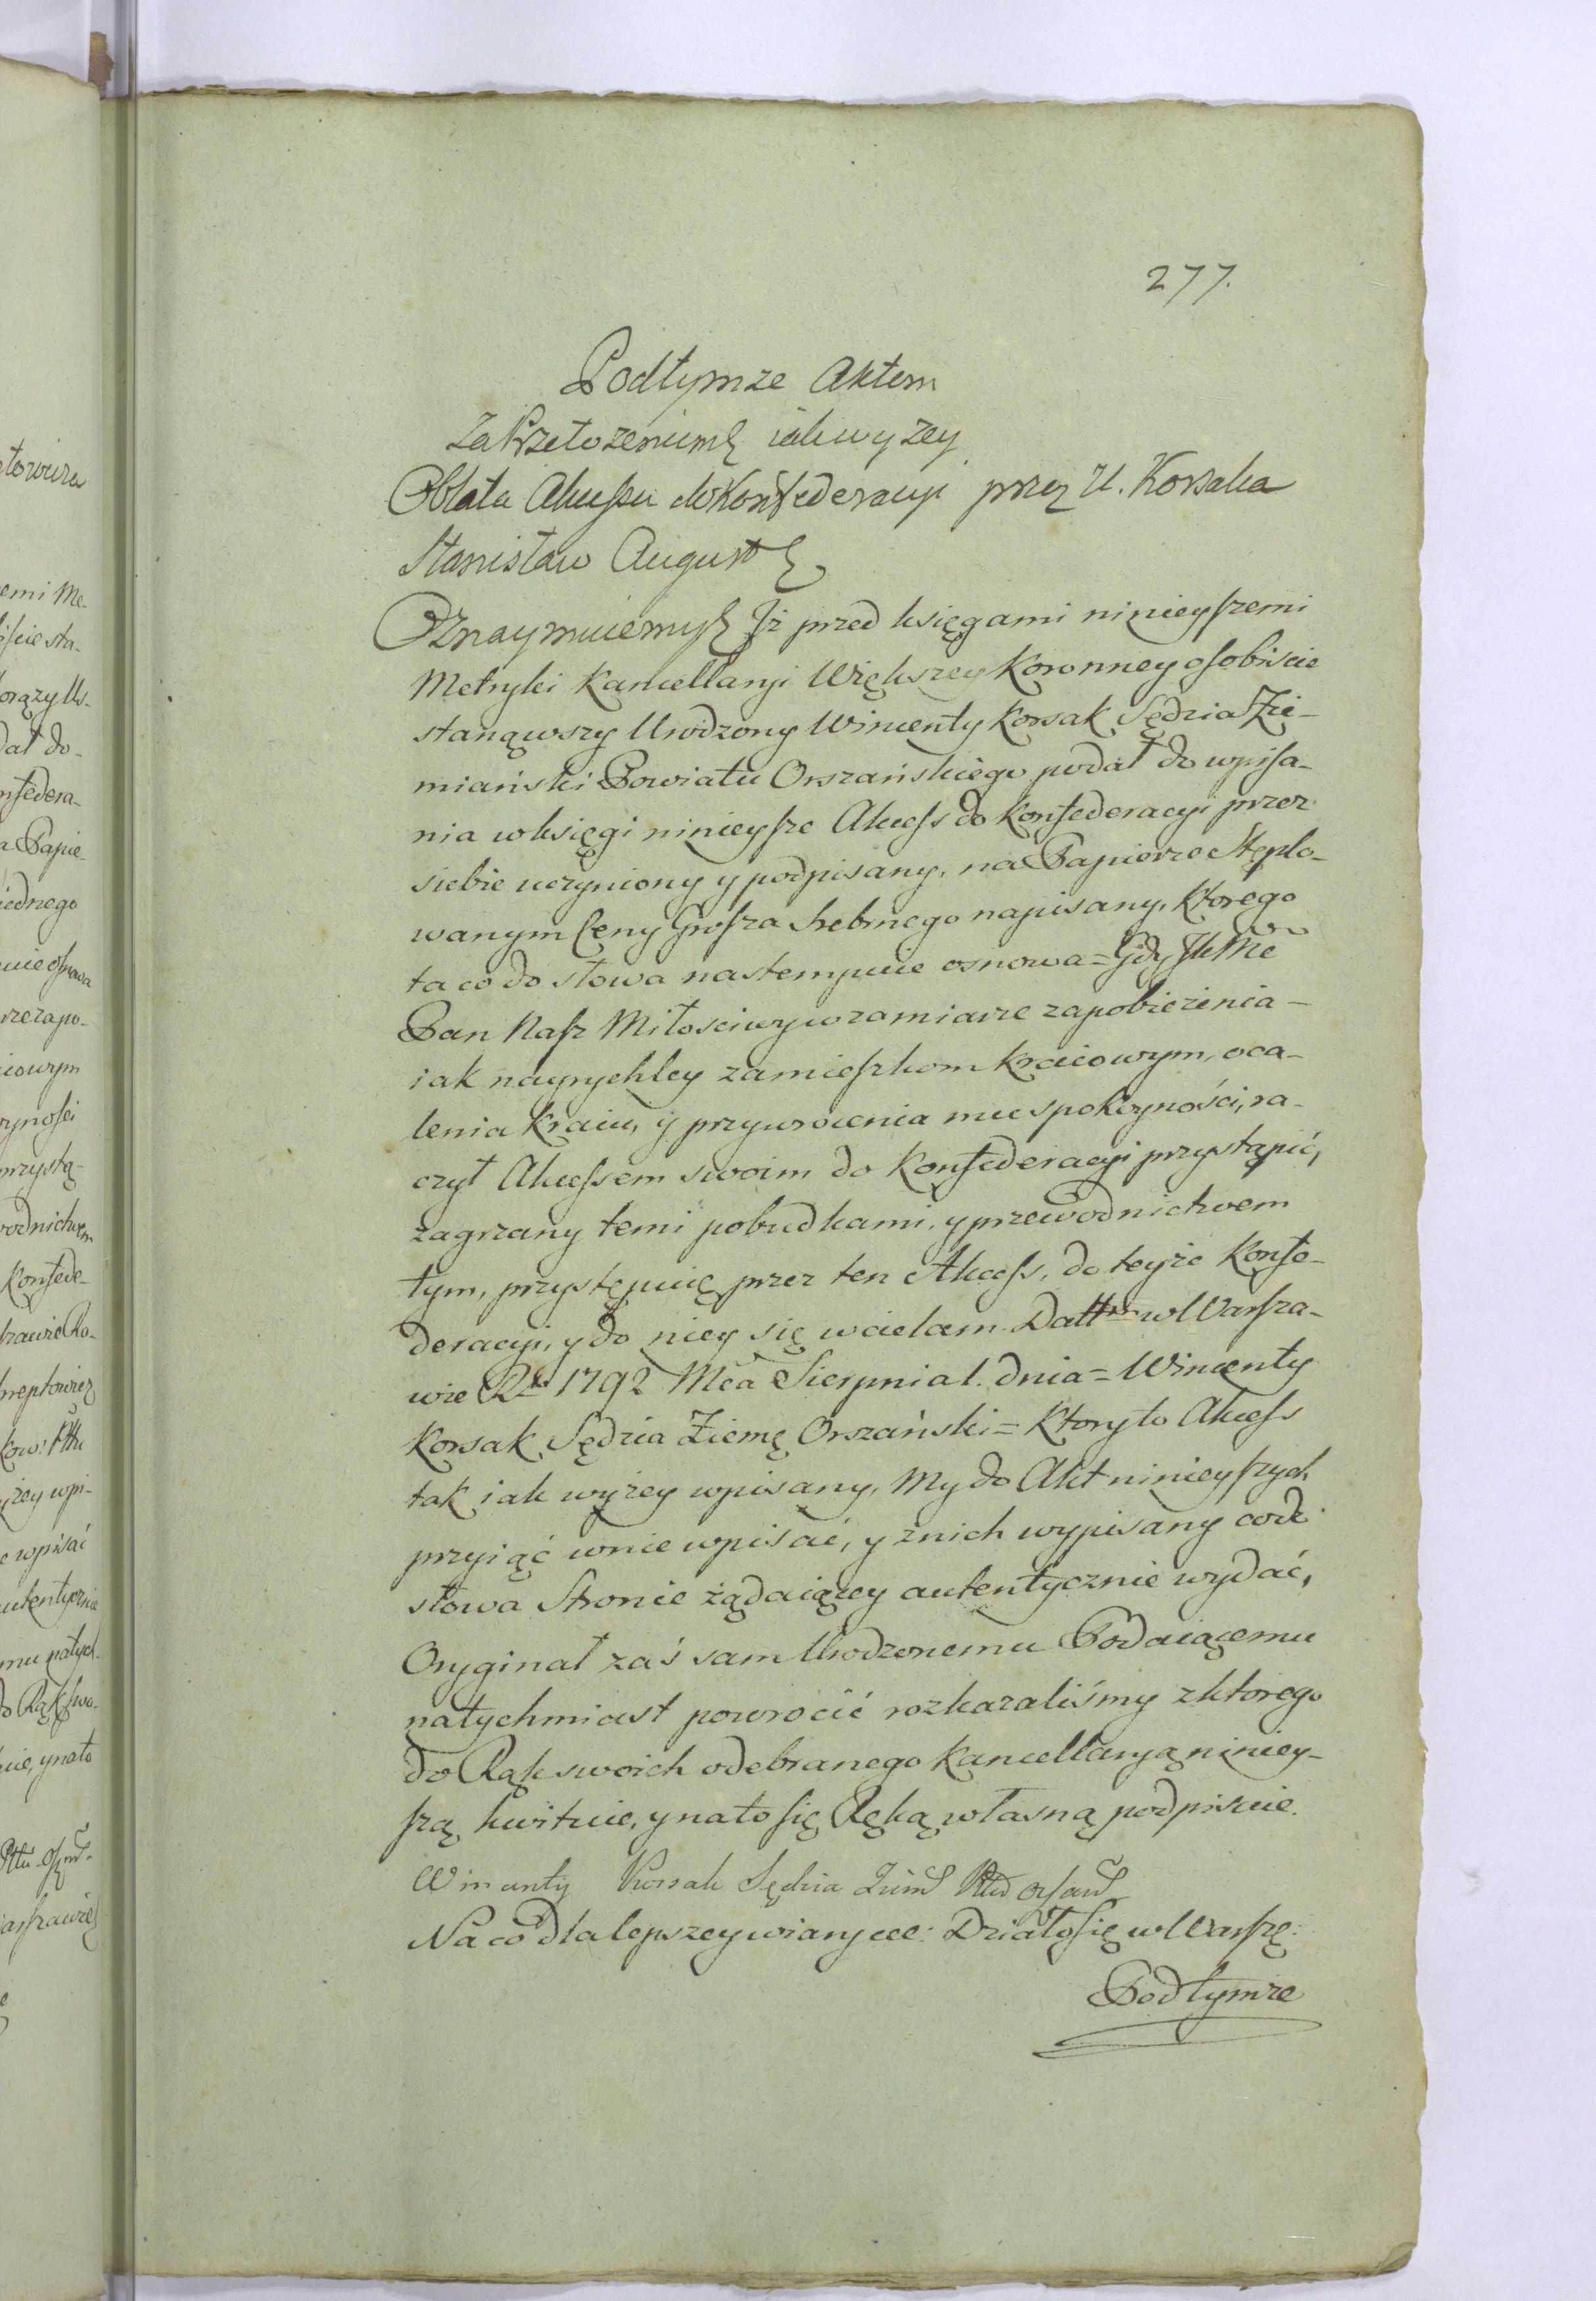 277.
Podtymze Aktem
Za Przełożeniem iak wyzey
Oblata Akcessu do Konfederacyi przez U. Korsaka
Stanisław August
Oznaymuiemy Iż przed księgami ninieyszemi
Metryki Kancellaryi Większey Koronney osobiscie
stanąwszy Urodzony Wincenty Korsak Sędzia Zie-
miański Powiatu Orszańskiego podał do wpisa-
nia w księgi ninieysze Akcess do Konfederacyi przez
siebie uczyniony y podpisany, na Papierze Stęplo-
wanym Ceny Grosza Srebrnego napisany, ktorego
ta co do słowa nastempuie osnowa = Gdy JKMć
Pan Nasz Miłosciwy w zamiarze zapobieżenia -
iak nayrychley zamieszkom kraiowym, oca-
lenia kraiu, y przywrocenia mu spokoyności, ra-
czył Akcessem swoim do Konfederacyi przystąpić,
zagrzany temi pobudkami, y przewodnictwem
tym, przystępuię przez ten Akcess, do teyże Konfe-
deracyi, y do niey się wcielam. Dattt w Warsza-
wie Rku 1792 Mca Sierpnia 1. dnia = Wincenty
Korsak Sędzia Ziemę Orszański = Ktory to Akcess
tak iak wyżey wpisany, My do Akt ninieyszych
przyiąć w nie wpisać, y z nich wypisany co do
słowa Stronie żądaiącey autentycznie wydać,
Oryginał zaś sam Urodzonemu Podaiącemu
natychmiast powrocić rozkazaliśmy z ktorego
do Rąk swoich odebranego Kancellaryą niniey-
szą kwituie, y na to się Ręką własną podpisuie.
Wincenty Korsak Sędzia Ziems Pttu Orszań
Na co dla lepszey wiary ccc: Działo się w Warszę:
Podtymze